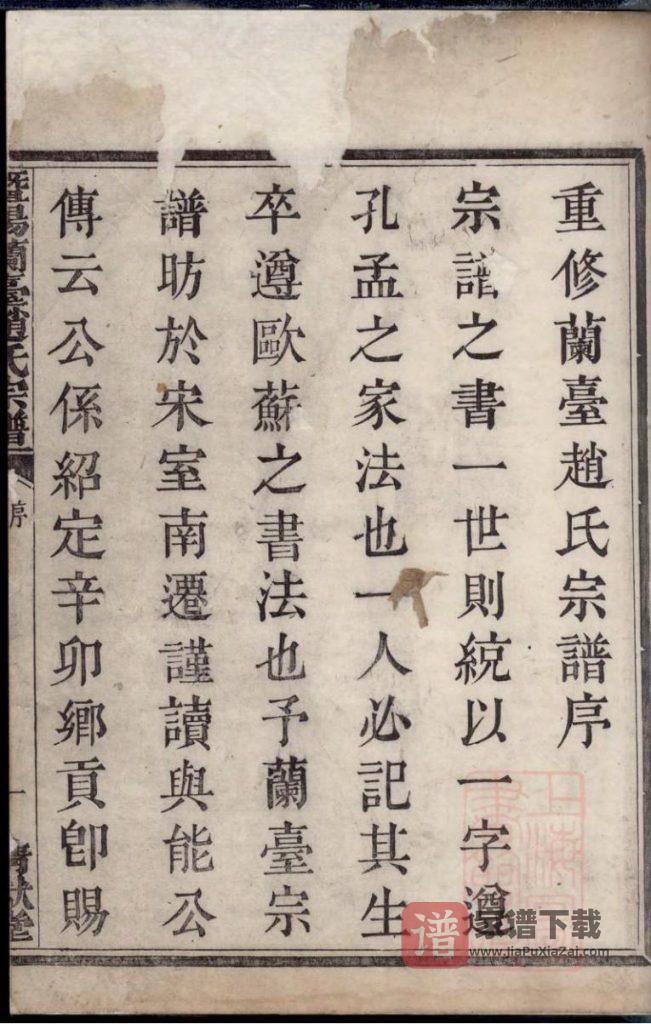 重修蘭臺趙氏宗譜序
宗譜之書一世則統以一字遵
孔孟之家法也一人必記其生
卒遵歐蘇之書法也予蘭臺宗
譜昉於宋室南遷謹讀與能公
傳云公係紹定辛卯鄉貢卽賜
暨陽蘭臺趙氏宗譜
序
一
譜下载
www.JiaPuXiaZai.com